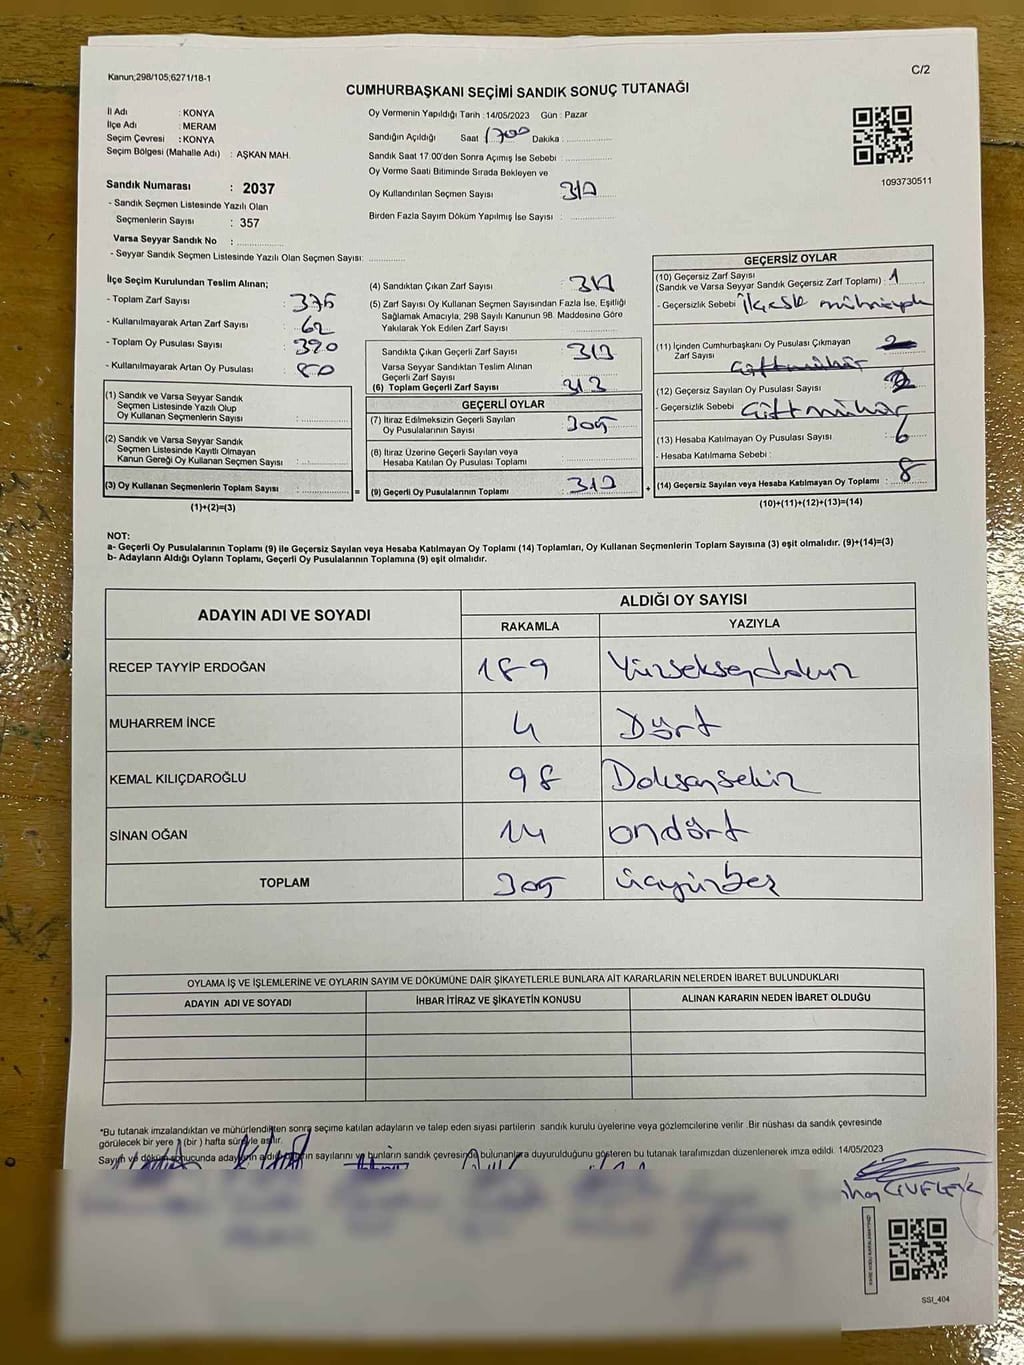 Kanun;298/105;6271/18-1
C/2
CUMHURBAŞKANI SEÇİMİ SANDIK SONUÇ TUTANAĞI
İl Adı : KONYA
İlçe Adı : MERAM
Seçim Çevresi : KONYA
Seçim Bölgesi (Mahalle Adı) : AŞKAN MAH.
Sandık Numarası : 2037
- Sandık Seçmen Listesinde Yazılı Olan
Seçmenlerin Sayısı : 357
Varsa Seyyar Sandık No :
- Seyyar Sandık Seçmen Listesinde Yazılı Olan Seçmen Sayısı:
Oy Vermenin Yapıldığı Tarih : 14/05/2023 Gün : Pazar
Sandığın Açıldığı Saat 1700 Dakika :
Sandık Saat 17:00'den Sonra Açımış İse Sebebi :
Oy Verme Saati Bitiminde Sırada Bekleyen ve
Oy Kullandırılan Seçmen Sayısı
Birden Fazla Sayım Döküm Yapılmış İse Sayısı :
1093730511
İlçe Seçim Kurulundan Teslim Alınan;
- Toplam Zarf Sayısı : 375
- Kullanılmayarak Artan Zarf Sayısı : 62
- Toplam Oy Pusulası Sayısı : 390
- Kullanılmayarak Artan Oy Pusulası : 80
(1) Sandık ve Varsa Seyyar Sandık
Seçmen Listesinde Yazılı Olup
Oy Kullanan Seçmenlerin Sayısı :
(2) Sandık ve Varsa Seyyar Sandık
Seçmen Listesinde Kayıtlı Olmayan
Kanun Gereği Oy Kullanan Seçmen Sayısı :
(3) Oy Kullanan Seçmenlerin Toplam Sayısı :
(1)+(2)=(3)
(4) Sandıktan Çıkan Zarf Sayısı :
(5) Zarf Sayısı Oy Kullanan Seçmen Sayısından Fazla İse, Eşitliği
Sağlamak Amacıyla, 298 Sayılı Kanunun 98. Maddesine Göre
Yakılarak Yok Edilen Zarf Sayısı :
Sandıkta Çıkan Geçerli Zarf Sayısı : 313
Varsa Seyyar Sandıktan Teslim Alınan
Geçerli Zarf Sayısı :
(6) Toplam Geçerli Zarf Sayısı : 313
GEÇERLİ OYLAR
(7) İtiraz Edilmeksizin Geçerli Sayılan
Oy Pusulalarının Sayısı : 305
(8) İtiraz Üzerine Geçerli Sayılan veya
Hesaba Katılan Oy Pusulası Toplamı
(9) Geçerli Oy Pusulalarının Toplamı :
GEÇERSİZ OYLAR
(10) Geçersiz Zarf Sayısı
(Sandık ve Varsa Seyyar Sandık Geçersiz Zarf Toplamı) : 1
- Geçersizlik Sebebi :
(11) İçinden Cumhurbaşkanı Oy Pusulası Çıkmayan
Zarf Sayısı
(12) Geçersiz Sayılan Oy Pusulası Sayısı : 2
- Geçersizlik Sebebi : Çift mühür
(13) Hesaba Katılmayan Oy Pusulası Sayısı : 6
- Hesaba Katılmama Sebebi :
(14) Geçersiz Sayılan veya Hesaba Katılmayan Oy Toplamı : 8
(10)+(11)+(12)+(13)=(14)
NOT:
a- Geçerli Oy Pusulalarının Toplamı (9) ile Geçersiz Sayılan veya Hesaba Katılmayan Oy Toplamı (14) Toplamları, Oy Kullanan Seçmenlerin Toplam Sayısına (3) eşit olmalıdır. (9)+(14)=(3)
b- Adayların Aldığı Oyların Toplamı, Geçerli Oy Pusulalarının Toplamına (9) eşit olmalıdır.
ADAYIN ADI VE SOYADI
ALDIĞI OY SAYISI
RAKAMLA YAZIYLA
RECEP TAYYİP ERDOĞAN 189 Yüzseksendokuz
MUHARREM İNCE 4 Dört
KEMAL KILIÇDAROĞLU 98 Doksansekiz
SİNAN OĞAN 14 ondört
TOPLAM 305 üçyüzbeş
OYLAMA İŞ VE İŞLEMLERİNE VE OYLARIN SAYIM VE DÖKÜMÜNE DAİR ŞİKAYETLERLE BUNLARA AİT KARARLARIN NELERDEN İBARET BULUNDUKLARI
ADAYIN ADI VE SOYADI İHBAR İTİRAZ VE ŞİKAYETİN KONUSU ALINAN KARARIN NEDEN İBARET OLDUĞU
*Bu tutanak imzalandıktan ve mühürlendikten sonra seçime katılan adayların ve talep eden siyasi partilerin sandık kurulu üyelerine veya gözlemcilerine verilir .Bir nüshası da sandık çevresinde
görülecek bir yere 1 (bir ) hafta süreyle asılır.
Sayım ve döküm sonucunda adayların aldığı oyların sayılarını ve bunların sandık çevresinde bulunanlara duyurulduğunu gösteren bu tutanak tarafımızdan düzenlenerek imza edildi. 14/05/2023
SSI_404